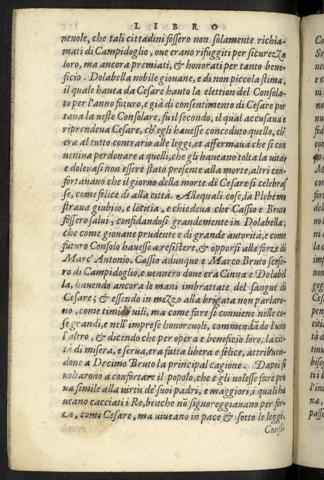 LIBRO
neuole, che tali cittadini fossero non solamente richia-
mati di Campidoglio, oue erano rifuggiti per sicurezza
loro, ma ancora premiati, & honorati per tanto bene-
ficio. Dolabella nobile giouane, e di non piccola stima,
il quale haueua da Cesare hauto la elettion del Consola-
to per l'anno futuro, e già di consentimento di Cesare por
taua la ueste Consolare, fu il secondo, il qual accusaua e
riprendeua Cesare, ch'egli hauesse conceduto quello, ch'
era al tutto contrario alle leggi, et affermaua che si con
ueniua perdonare a quelli, che gli haueano tolta la uita,
e doleuasi non essere stato presente alla morte, altri con-
fortauano che il giorno della morte di Cesare si celebras
se, come felice di alla città. Allequali cose, la Plebe mo
straua giubio, e letitia, e chiedeua che Cassio e Bruto
fossero salui, confidandosi grandemente in Dolabella,
che come giouane prudente e di grande autorità, e come
futuro Consolo hauesse a resistere, & opporsi alle forze di
Marc'Antonio. Cassio adunque e Marco Bruto scese-
ro di Campidoglio, e uennero doue era Cinna e Dolabel
la, hauendo ancora le mani imbrattate del sangue di
Cesare; & essendo in mezzo alla brigata non parlaro-
no, come timidi o uili, ma come fare si conuiene nelle co-
se grandi, e nell'imprese honoreuoli, commendādo l'uno
l'altro, & dicendo che per opera e beneficio loro, la cit-
tà di misera, e serua, era fatta libera e felice, attribuen-
done a Decimo Bruto la principal cagione. Dapoi si
uoltarono a confortare il popolo, che e gli uolesse fare pro
ua simile alla uirtù de' suoi padri, e maggiori, i quali ha
ueano cacciati i Re, benche nō signoreggiauano per for-
za, come Cesare, ma uiueano in pace & sotto le leggi.
Consi-